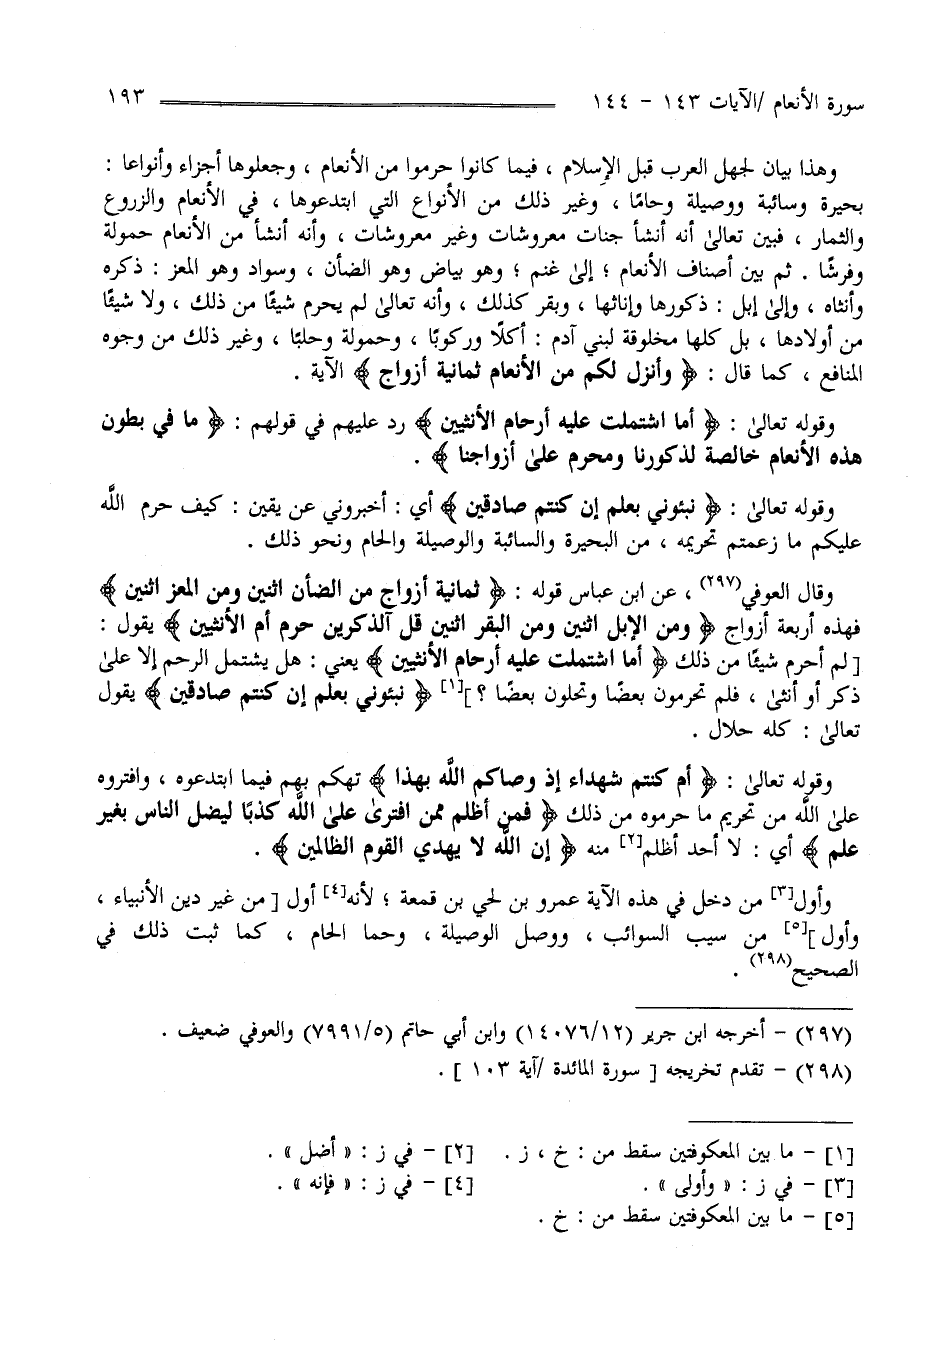 سورة الأنعام /الآيات ١٤٣ - ١٤٤
١٩٣
وهذا بيان لجهل العرب قبل الإسلام ، فيما كانوا حرموا من الأنعام ، وجعلوها أجزاء وأنواعا :
بحيرة وسائبة ووصيلة وحامًا ، وغير ذلك من الأنواع التي ابتدعوها ، في الأنعام والزروع
والثمار ، فبين تعالىٰ أنه أنشأ جنات معروشات وغير معروشات ، وأنه أنشأ من الأنعام حمولة
وفرشًا . ثم بين أصناف الأنعام ؛ إلىٰ غنم ؛ وهو بياض وهو الضأن ، وسواد وهو المعز : ذكره
وأنثاه ، وإلىٰ إبل : ذكورها وإناثها ، وبقر كذلك ، وأنه تعالىٰ لم يحرم شيئًا من ذلك ، ولا شيئًا
من أولادها ، بل كلها مخلوقة لبني آدم : أكلًا وركوبًا ، وحمولة وحلبًا ، وغير ذلك من وجوه
المنافع ، كما قال : ﴿ وأنزل لكم من الأنعام ثمانية أزواج ﴾ الآية .
وقوله تعالىٰ : ﴿ أما اشتملت عليه أرحام الأنثيين ﴾ رد عليهم في قولهم : ﴿ ما في بطون
هذه الأنعام خالصة لذكورنا ومحرم علىٰ أزواجنا ﴾ .
وقوله تعالىٰ : ﴿ نبئوني بعلم إن كنتم صادقين ﴾ أي : أخبروني عن يقين : كيف حرم اللَّه
عليكم ما زعمتم تحريمه ، من البحيرة والسائبة والوصيلة والحام ونحو ذلك .
وقال العوفي(٢٩٧) ، عن ابن عباس قوله : ﴿ ثمانية أزواج من الضأن اثنين ومن المعز اثنين ﴾
فهذه أربعة أزواج ﴿ ومن الإبل اثنين ومن البقر اثنين قل آلذكرين حرم أم الأنثيين ﴾ يقول :
[ لم أحرم شيئًا من ذلك ﴿ أما اشتملت عليه أرحام الأنثيين ﴾ يعني : هل يشتمل الرحم إلا علىٰ
ذكر أو أنثىٰ ، فلم تحرمون بعضًا وتحلون بعضًا ؟ ][١] ﴿ نبئوني بعلم إن كنتم صادقين ﴾ يقول
تعالىٰ : كله حلال .
وقوله تعالىٰ : ﴿ أم كنتم شهداء إذ وصاكم اللَّه بهذا ﴾ تهكم بهم فيما ابتدعوه ، وافتروه
علىٰ اللَّه من تحريم ما حرموه من ذلك ﴿ فمن أظلم ممن افترىٰ علىٰ اللَّه كذبًا ليضل الناس بغير
علم ﴾ أي : لا أحد أظلم[٢] منه ﴿ إن اللَّه لا يهدي القوم الظالمين ﴾ .
وأول[٣] من دخل في هذه الآية عمرو بن لحي بن قمعة ؛ لأنه[٤] أول [ من غير دين الأنبياء ،
وأول ][٥] من سيب السوائب ، ووصل الوصيلة ، وحما الحام ، كما ثبت ذلك في
الصحيح(٢٩٨) .
(٢٩٧) - أخرجه ابن جرير (١٤٠٧٦/١٢) وابن أبي حاتم (٧٩٩١/٥) والعوفي ضعيف .
(٢٩٨) - تقدم تخريجه [ سورة المائدة /آية ١٠٣ ] .
[١] - ما بين المعكوفتين سقط من : خ ، ز . [٢] - في ز : « أضل » .
[٣] - في ز : « وأولى » . [٤] - في ز : « فإنه » .
[٥] - ما بين المعكوفتين سقط من : خ .